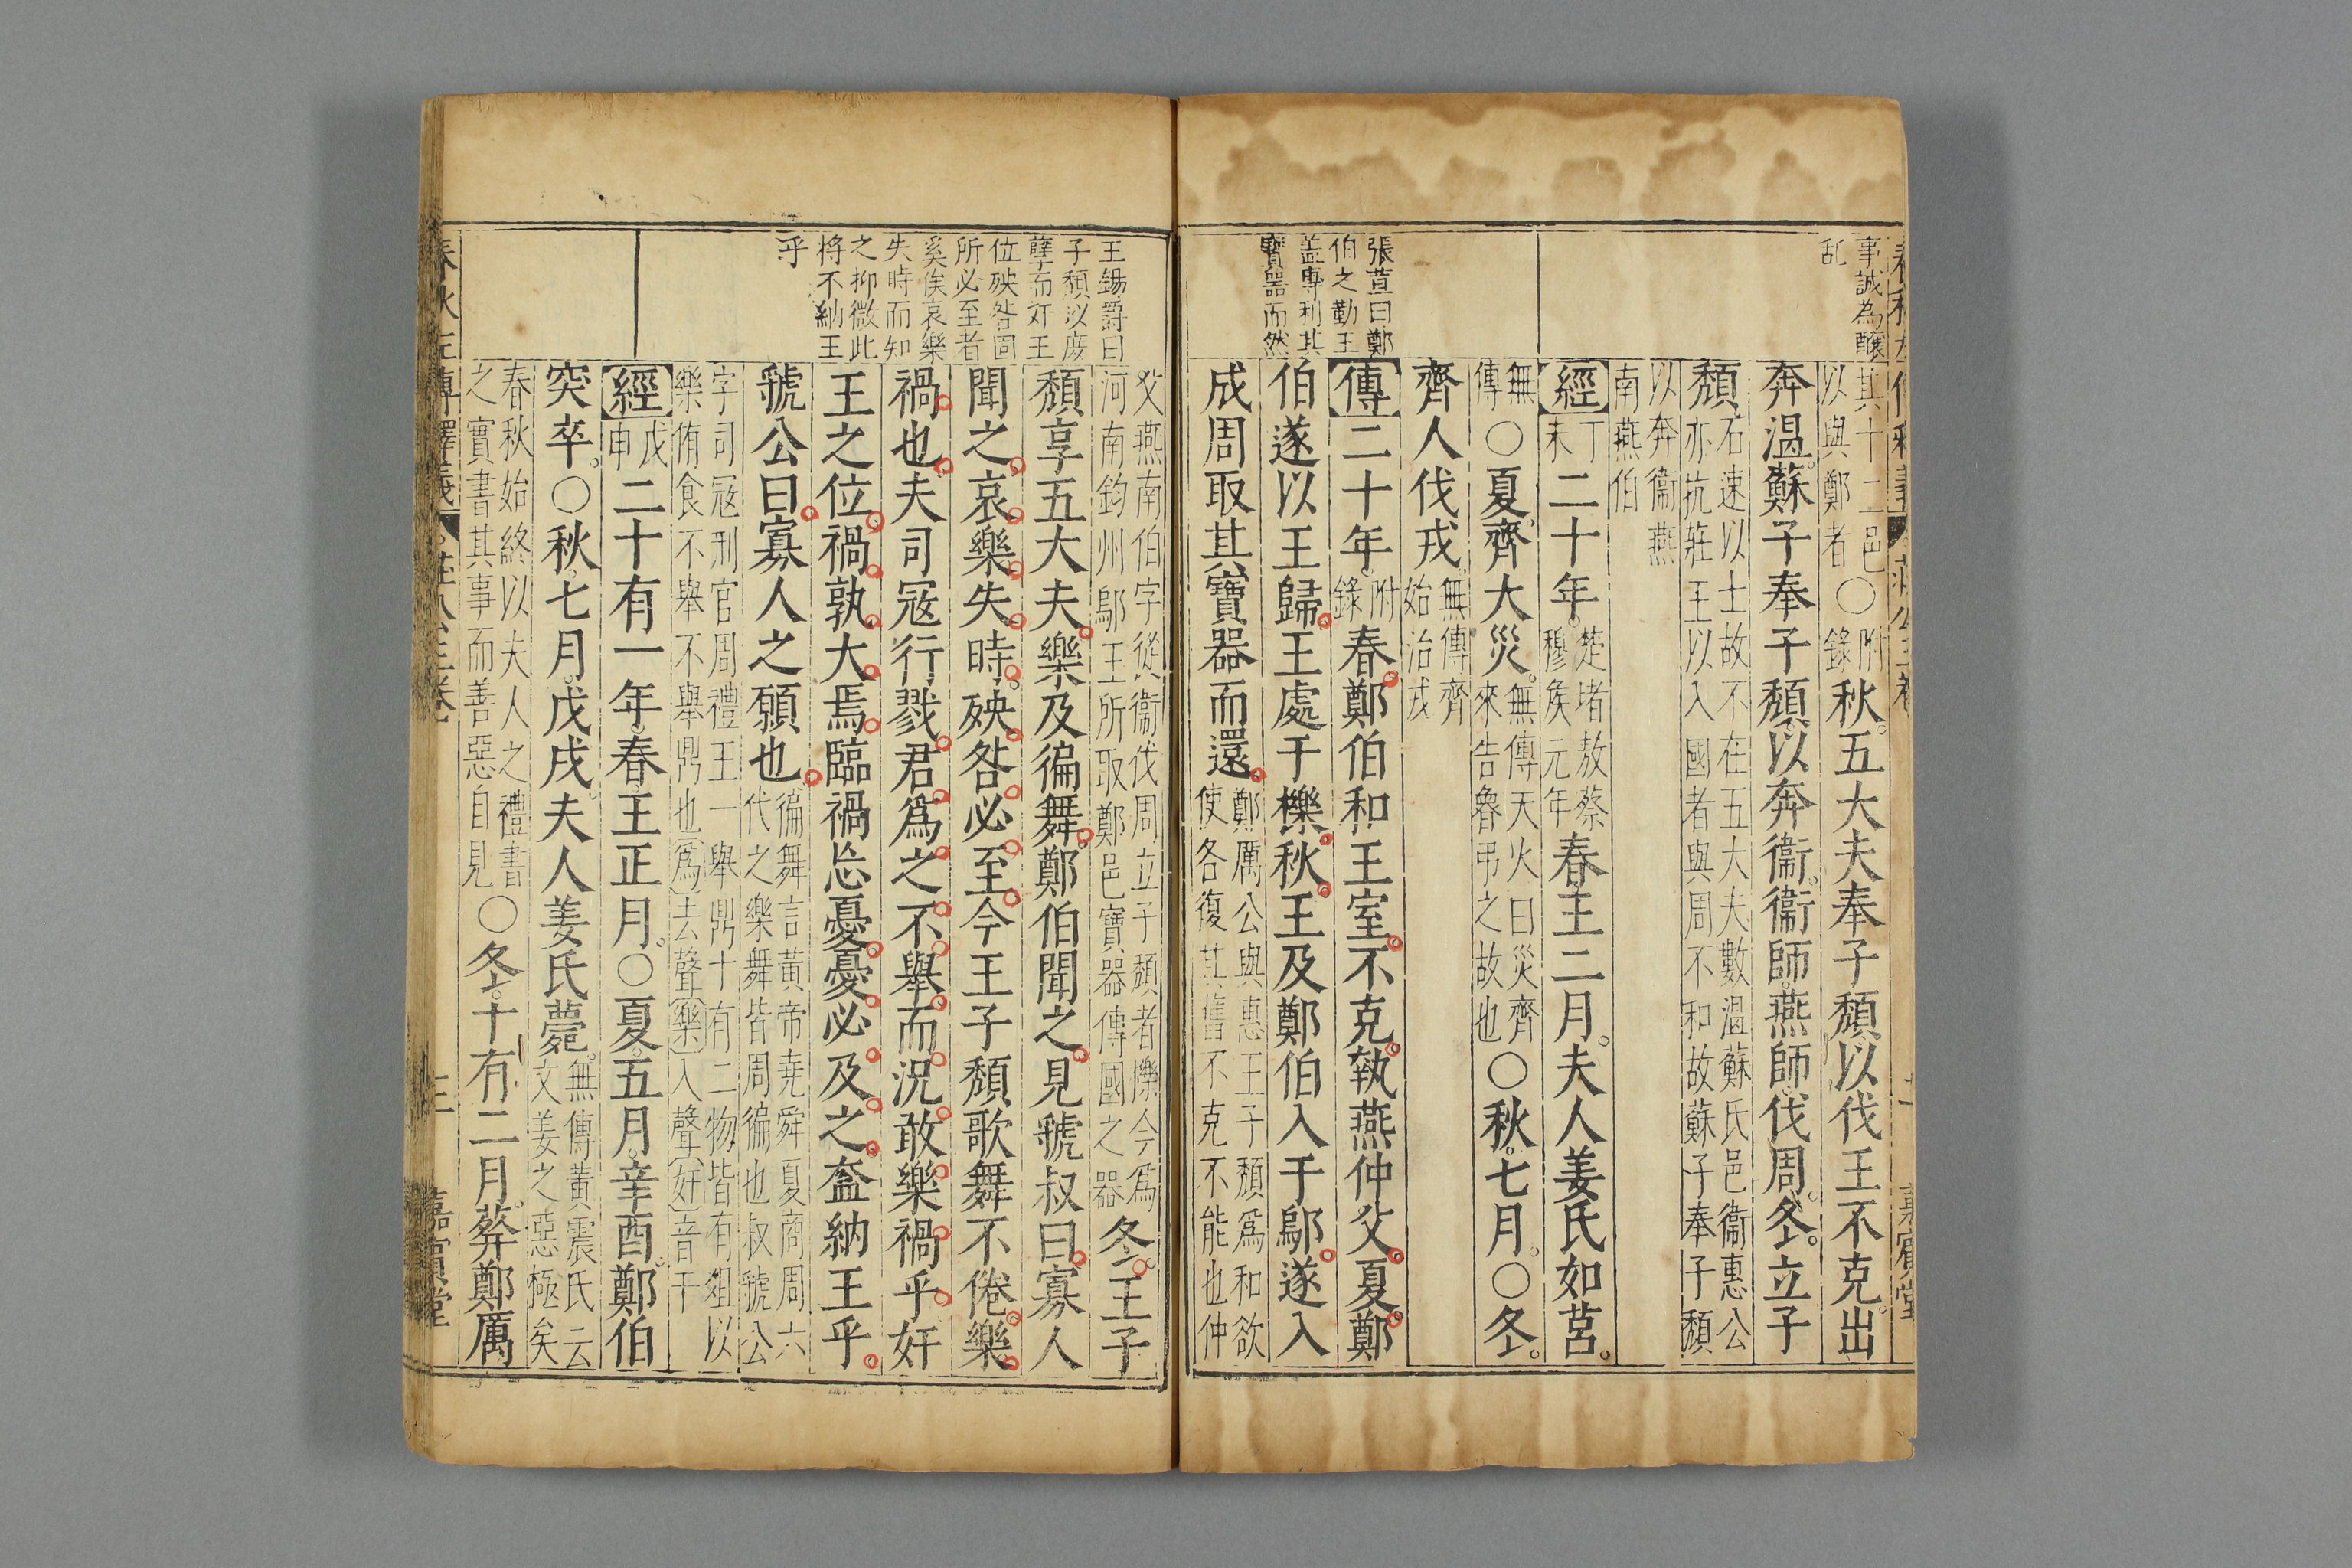 事誠為釀
乱
其十二邑〇附
以與鄭者　錄
秋五大夫奉子頹以伐王不克出
奔溫蘇子奉子頹以奔衞衞師燕師伐周冬立子
頹
石速以士故不在五大夫數溫蘇氏邑衞惠公
亦抗莊王以入國者與周不和故蘇子奉子頹
以奔衞燕
南燕伯
經
丁
未
二十年
楚堵敖蔡
穆矦元年
春王二月夫人姜氏如莒
無
傳
〇夏齊大災
無傳天火曰災齊
來告魯弔之故也
〇秋七月〇冬
齊人伐戎
無傳齊
始治戎
張萱曰鄭
伯之勤王
盖專利其
寶器而然
傳二十年
附
錄
春鄭伯和王室不克執燕仲父夏鄭
伯遂以王歸王處于櫟秋王及鄭伯入于鄔遂入
成周取其寶器而還
鄭厲公與惠王子頹爲和欲
使各復其舊不克不能也仲
王錫爵曰
子頹以庶
孽而奸王
位殃咎固
所必至者
奚俟哀樂
失時而知
之抑微此
将不納王
乎
父燕南伯字從衞伐周立子頹者櫟今爲
河南鈞州鄔王所取鄭邑寶器傳國之器
冬王子
頹享五大夫樂及徧舞鄭伯聞之見虢叔曰寡人
聞之哀樂失時殃咎必至今王子頹歌舞不倦樂
禍也夫司寇行戮君爲之不舉而況敢樂禍乎奸
王之位禍孰大焉臨禍忘憂憂必及之盍納王乎
虢公曰寡人之願也
徧舞言黃帝堯舜夏商周六
代之樂舞皆周徧也叔虢公
字司寇刑官周禮王一舉鼎十有二物皆有俎以
樂侑食不舉不舉鼎也爲去聲樂入聲奸音干
經
戊
申
二十有一年春王正月〇夏五月辛酉鄭伯
突卒〇秋七月戊戌夫人姜氏薨
無傳黃震氏云
文姜之惡極矣
春秋始終以夫人之禮書
之實書其事而善惡自見
〇冬十有二月葬鄭厲
春秋左傳釋義　莊公三卷　三　嘉賓堂